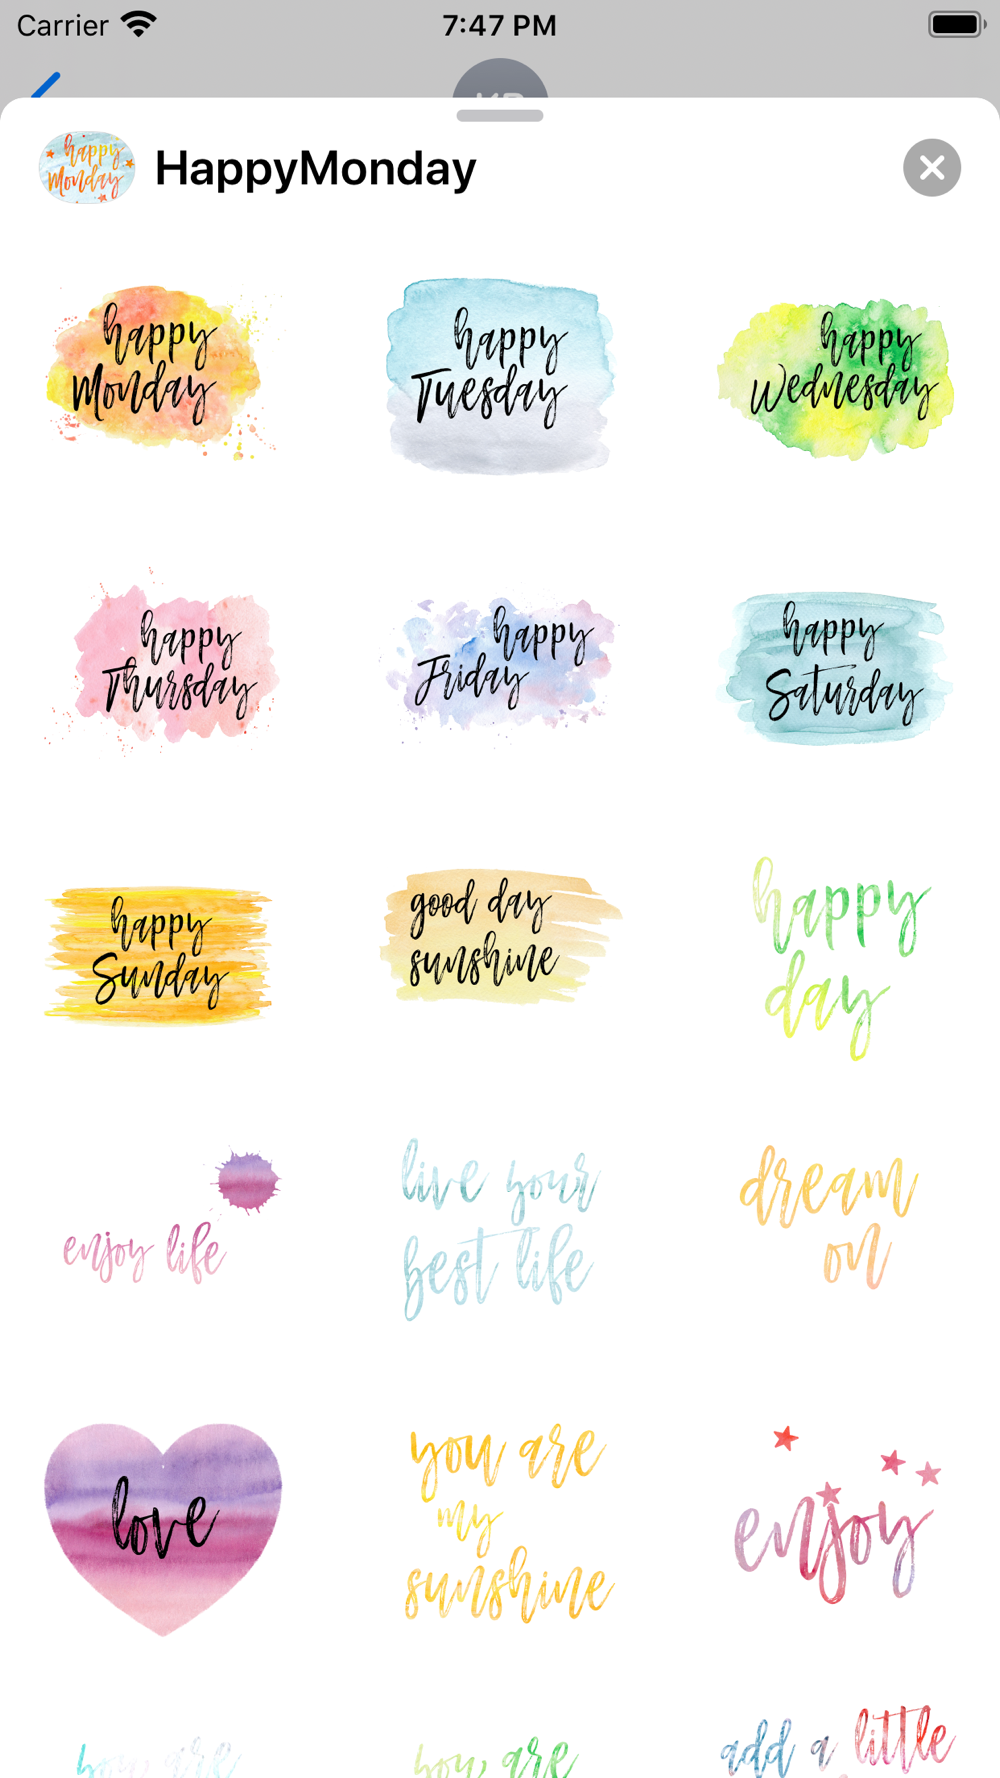 Carrier 7:47 PM
happy
Monday
HappyMonday
happy
Monday
happy
Tuesday
happy
Wednesday
happy
Thursday
happy
Friday
happy
Saturday
happy
Sunday
good day
sunshine
happy
day
enjoy life
live your
best life
dream
on
love
you are
my
sunshine
enjoy
you are
you are
add a little